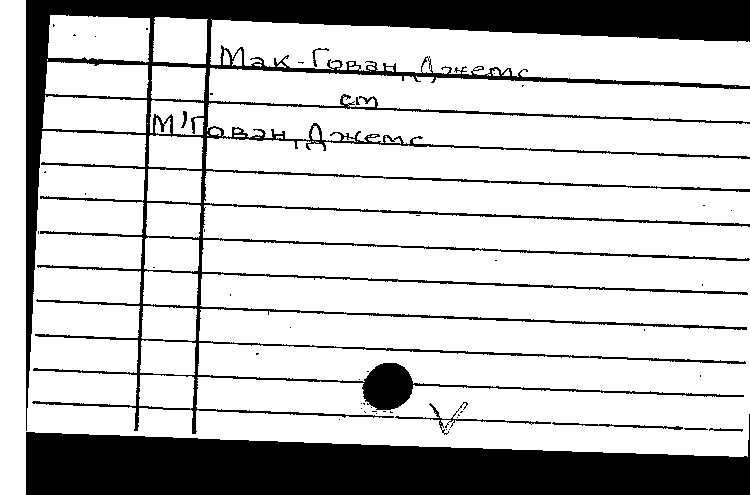 Мак-Гован, Джемс
см
М'Гован, Джемс